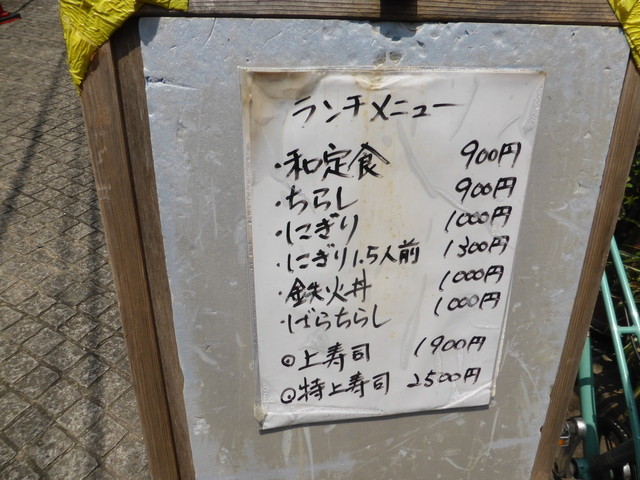 ランチメニュー
・和定食 900円
・ちらし 900円
・にぎり 1000円
・にぎり1.5人前 1300円
・鉄火丼 1000円
・ばらちらし 1000円
◎上寿司 1900円
◎特上寿司 2500円